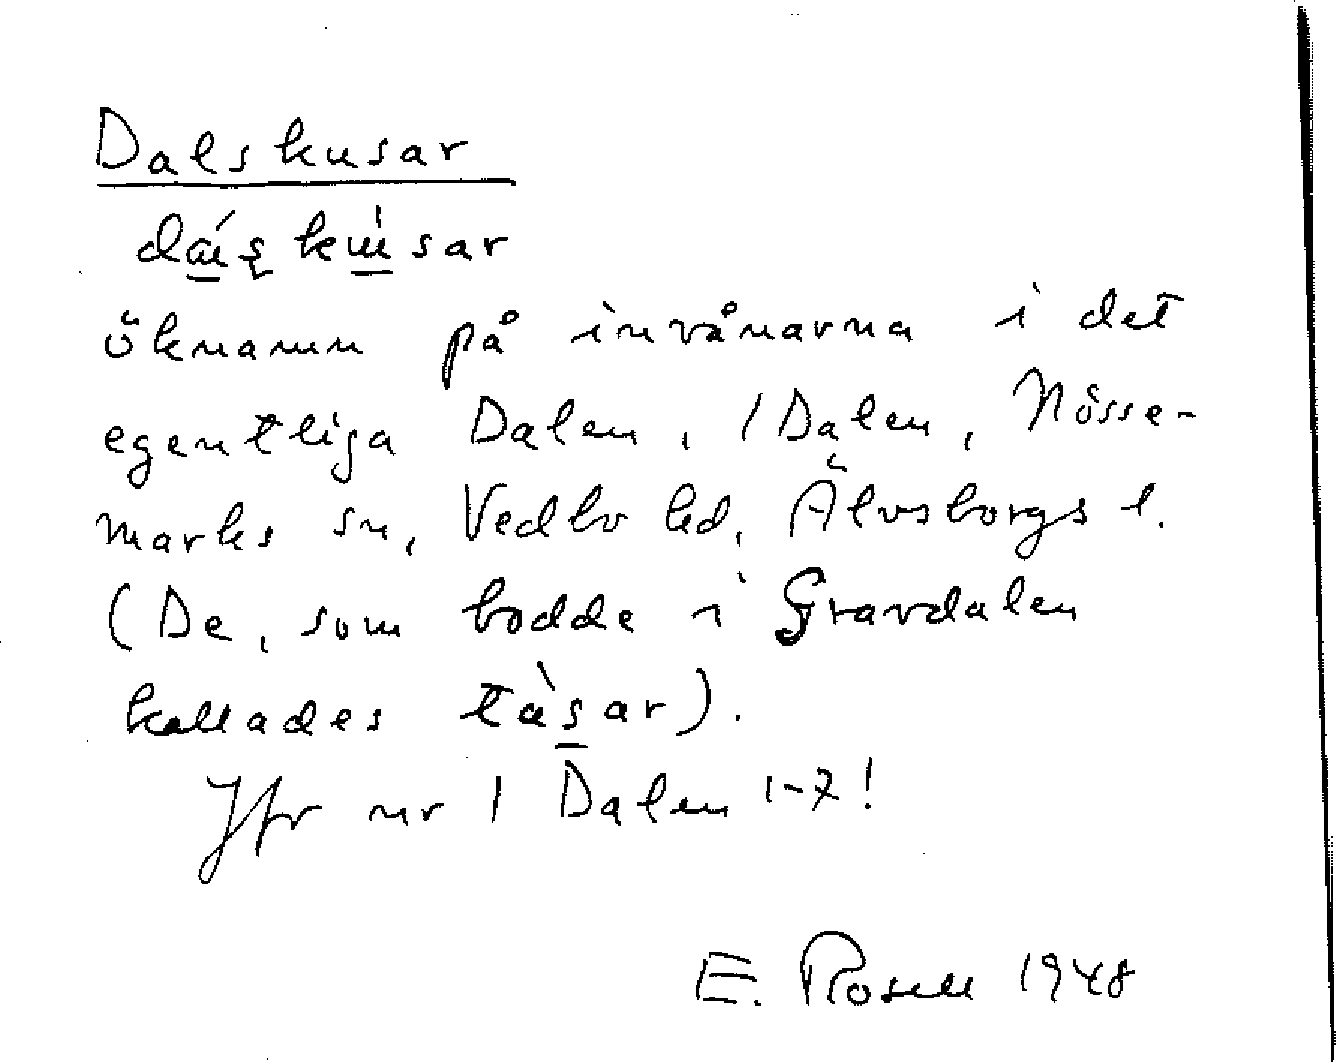 Dalskusar
dáʂkùsar
öknamn på invånarna i det
egentliga Dalen, 1 Dalen, Nösse-
marks sn, Vedbo hd, Älvsborgs l.
(De, som bodde i Gravdalen
kallades tàʂar).
Jfr nr 1 Dalen 1-7!
E. Rosell 1948